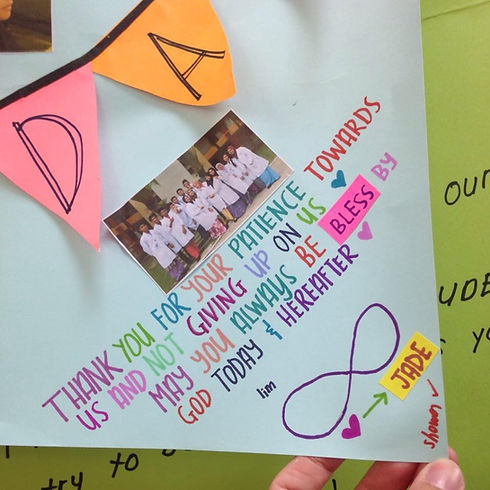 DA
THANK YOU FOR YOUR PATIENCE TOWARDS
US AND NOT GIVING UP ON US
MAY YOU ALWAYS BE BLESS BY
GOD TODAY & HEREAFTER
lim
JADE
our
try to